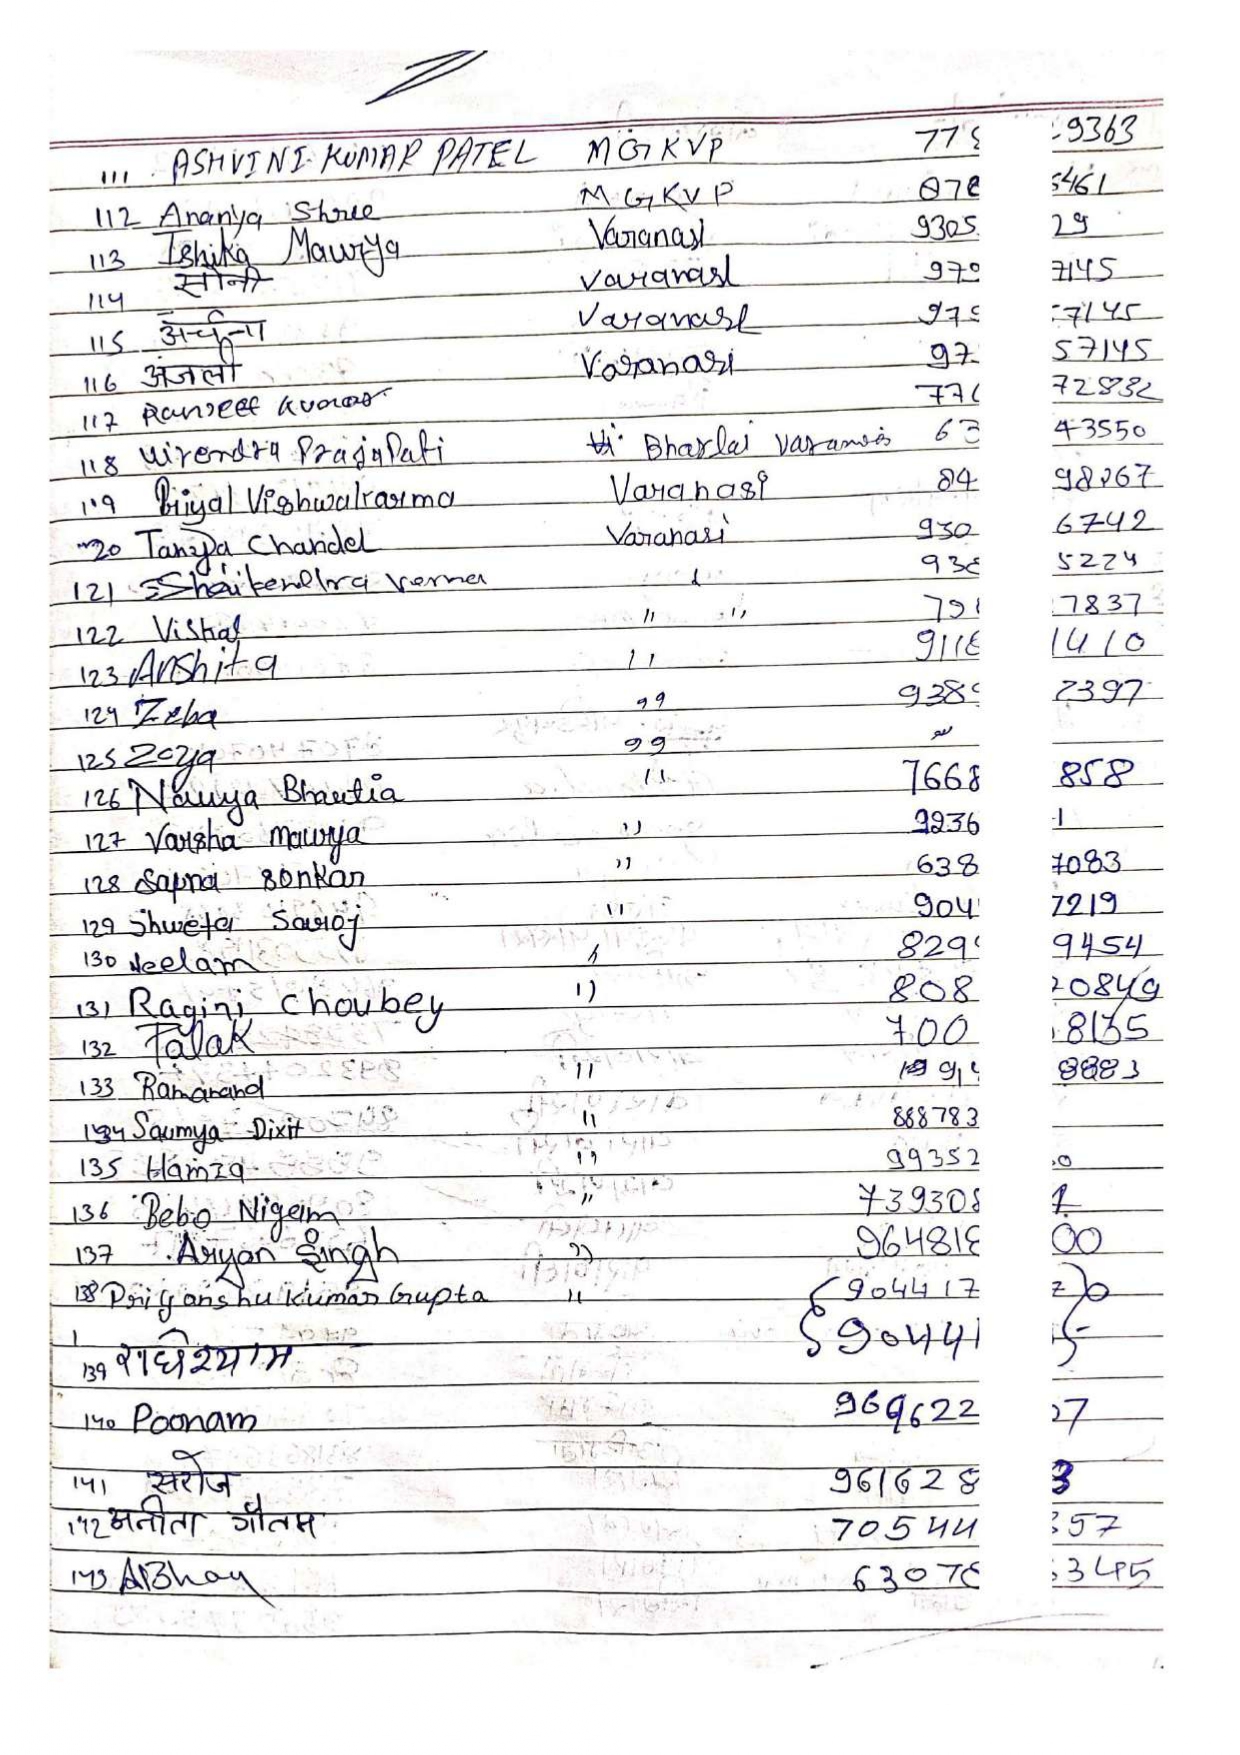 111 ASHVINI KUMAR PATEL MGKVP 778 9363
112 Ananya Shree MGKVP 878 5461
113 Ishika Mawrya Varanasi 9305 29
114 सोनी Varanasi 979 7145
115 अर्चना Varanasi 979 57145
116 अंजली Varanasi 97 57145
117 Ranjeet Kumar 776 72832
118 Virendra Prajapati Bharlai Varanasi 63 43550
119 Priyal Vishwakarma Varanasi 84 98267
120 Tanya Chandel Varanasi 930 6742
121 Shailendra Verma 938 5224
122 Vishal " " 791 7837
123 Anshita " 9118 1410
124 Zeba " 9389 2397
125 Zoya " "
126 Navya Bhartia " 7668 858
127 Varsha Mawrya " 9236 1
128 Sapna Sonkar " 638 7083
129 Shweta Saroj " 904 7219
130 Neelam " 829 9454
131 Ragini Choubey " 808 20849
132 Falak 700 8135
133 Ramanand " 8883
134 Saumya Dixit " 888783
135 Hamza " 99352 0
136 Bebo Nigam " 739308 1
137 Aryan Singh " 964818 00
138 Priyanshu Kumar Gupta " 904417
139 राधेश्याम 90441 5
140 Poonam 969622 27
141 सरोज 961628 3
142 अनीता गौतम 70544 357
143 ABhay 63078 3495